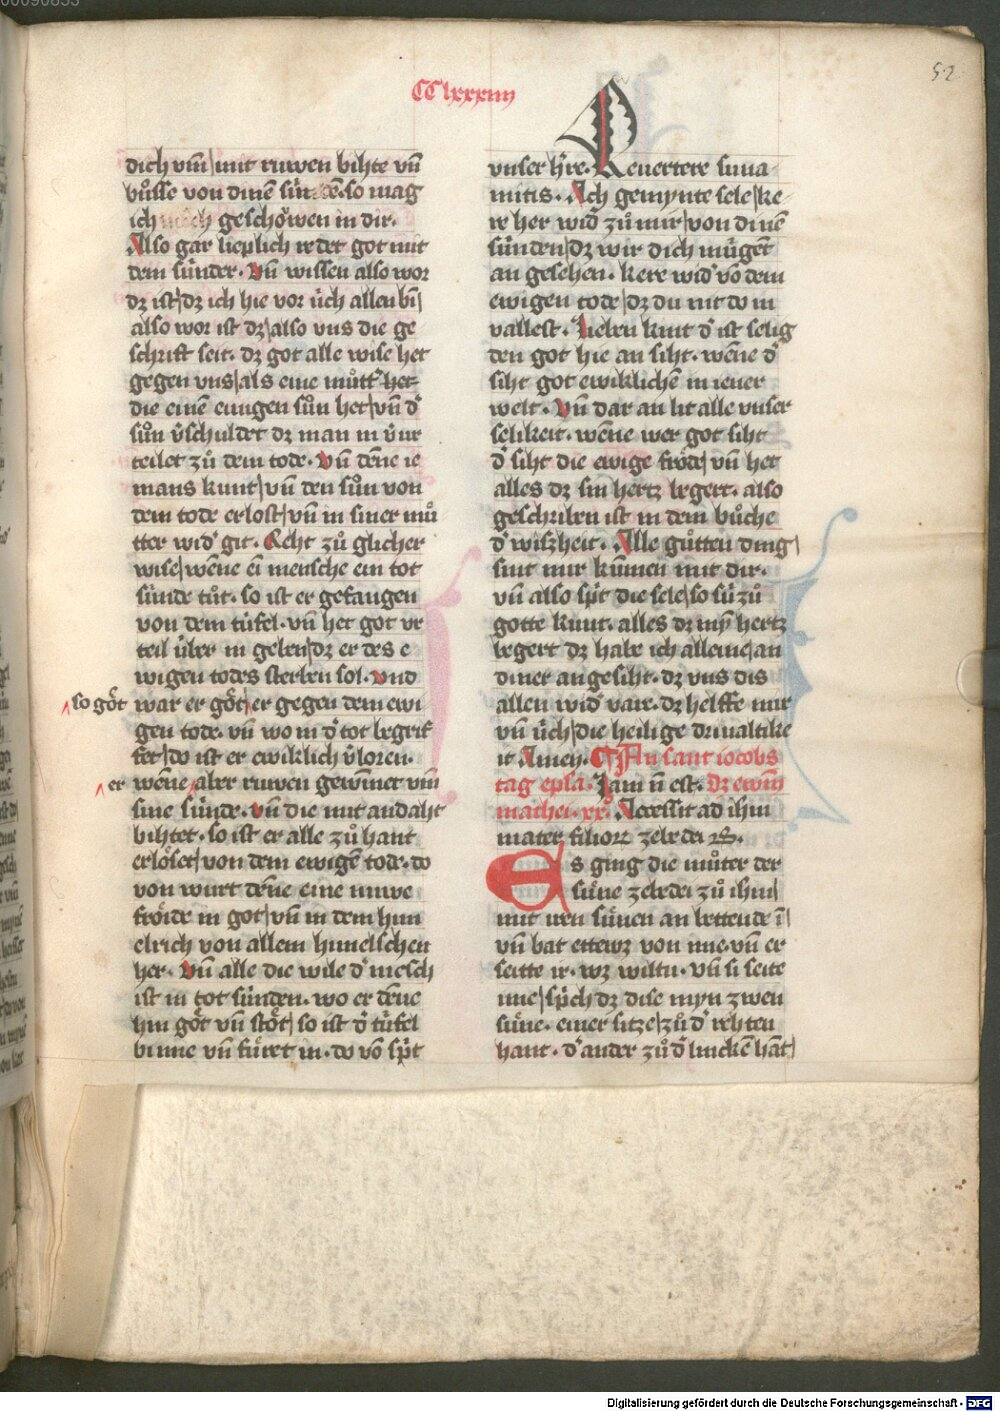 CClxxxiiii
52
dich vm̄ mit ruwen bihte vn̄
bůsse von dinē sündē. so mag
ich mich geschöwen in dir.
Also gar lieplich redet got mit
dem sünder. Vn̄ wissen also wor
dz ist dz ich hie vor üch allen bī
also wor ist dz also vns die ge
schrift seit. dz got alle wise het
gegen vns als eine můtt' het
die einē einigen sůn het vn̄ d'
sůn v'schuldet dz man in v'ur
teilet zů dem tode. Vn̄ dēne ie
mans kunt vn̄ den sůn von
dem tode erlost vn̄ in siner mů
tter wid' git. Reht zů glicher
wise wēne ei mensche ein tot
sünde tůt. so ist er gefangen
von dem tüfel. vn̄ het got vr
teil über in geben dz er des e
wigen todes sterben sol. vnd
so göt
war er göt er gegen dem ewi
gen tode. vn̄ wo in d' tot begrif
fet do ist er ewiklich v'loren.
er
wēne aber ruwen gewinnet vm̄
sine sünde. vn̄ die mit andaht
bihtet. so ist er alle zů hant
erlöset von dem ewigē tode. do
von wurt dēne eine nuwe
fröide in got vn̄ in dem him
elrich von allem himelschen
her. Vn̄ alle die wile d' mēsch
ist in tot sünden. wo er dēne
hin göt vn̄ stöt so ist d' tüfel
binne vn̄ füret in. do vō sp̄t
vnser h're. Reuertere suna
mitis. Ach gemynte sele ke
re her wid' zů mir von dinē
sünden dz wir dich mügēt
an gesehen. kere wid' vō dem
ewigen tode dz du nit do in
vallest. Lieben kint d' ist selig
den got hie an siht. wēne d'
siht got ewiklichē in iener
welt. Vn̄ dar an lit alle vnser
selikeit. wēne wer got siht
d' siht die ewige fröde vn̄ het
alles dz sin hertz begert. also
geschriben ist in dem bůche
d' wiszheit. Alle gütten ding
sint mir kumen mit dir.
vn̄ also sp̄t die sele so sü zů
gotte kunt. alles dz mȳ hertz
begert dz habe ich alleine an
diner angesiht. dz vns dis
allen wid' vare. dz helffe mir
vn̄ üch die heilige driualtike
it Amen. An sant iocobs
tag epla. Iam n̄ est. Dz ewm̄
mathei. xx. Accessit ad ihm
mater filioꝝ zebedei
Es ging die můter der
süne zebedei zů ihm
mit iren sünen an bettende ī
vn̄ bat ettewz von ime. vn̄ er
seitte ir. wz wiltu. Vn̄ si seite
ime sp̄ch dz dise myn zwen
süne. einer sitze zů d' rehten
hant. d' ander zů d' lincken hāt
Digitalisierung gefördert durch die Deutsche Forschungsgemeinschaft - DFG